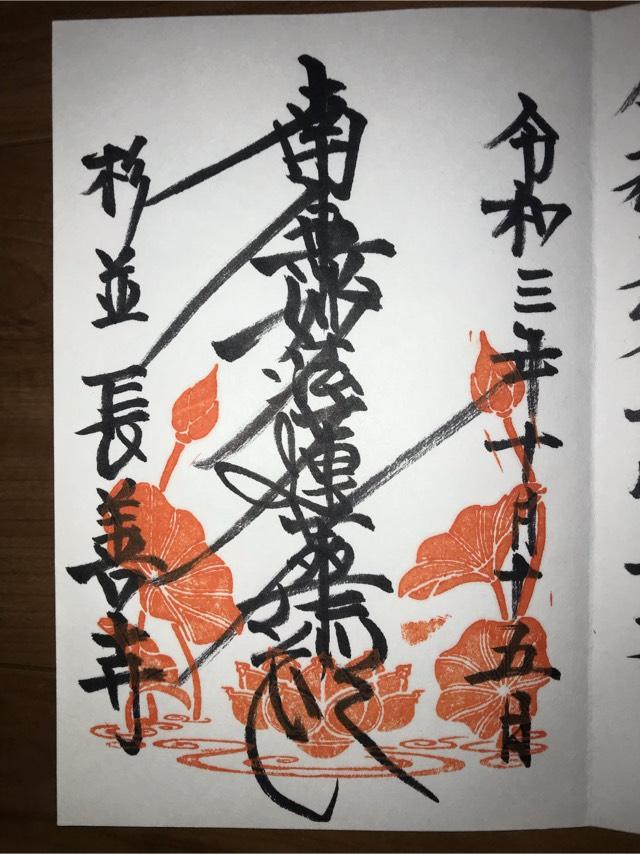 令和三年十月十五日
南無妙法蓮華経
杉並 長善寺